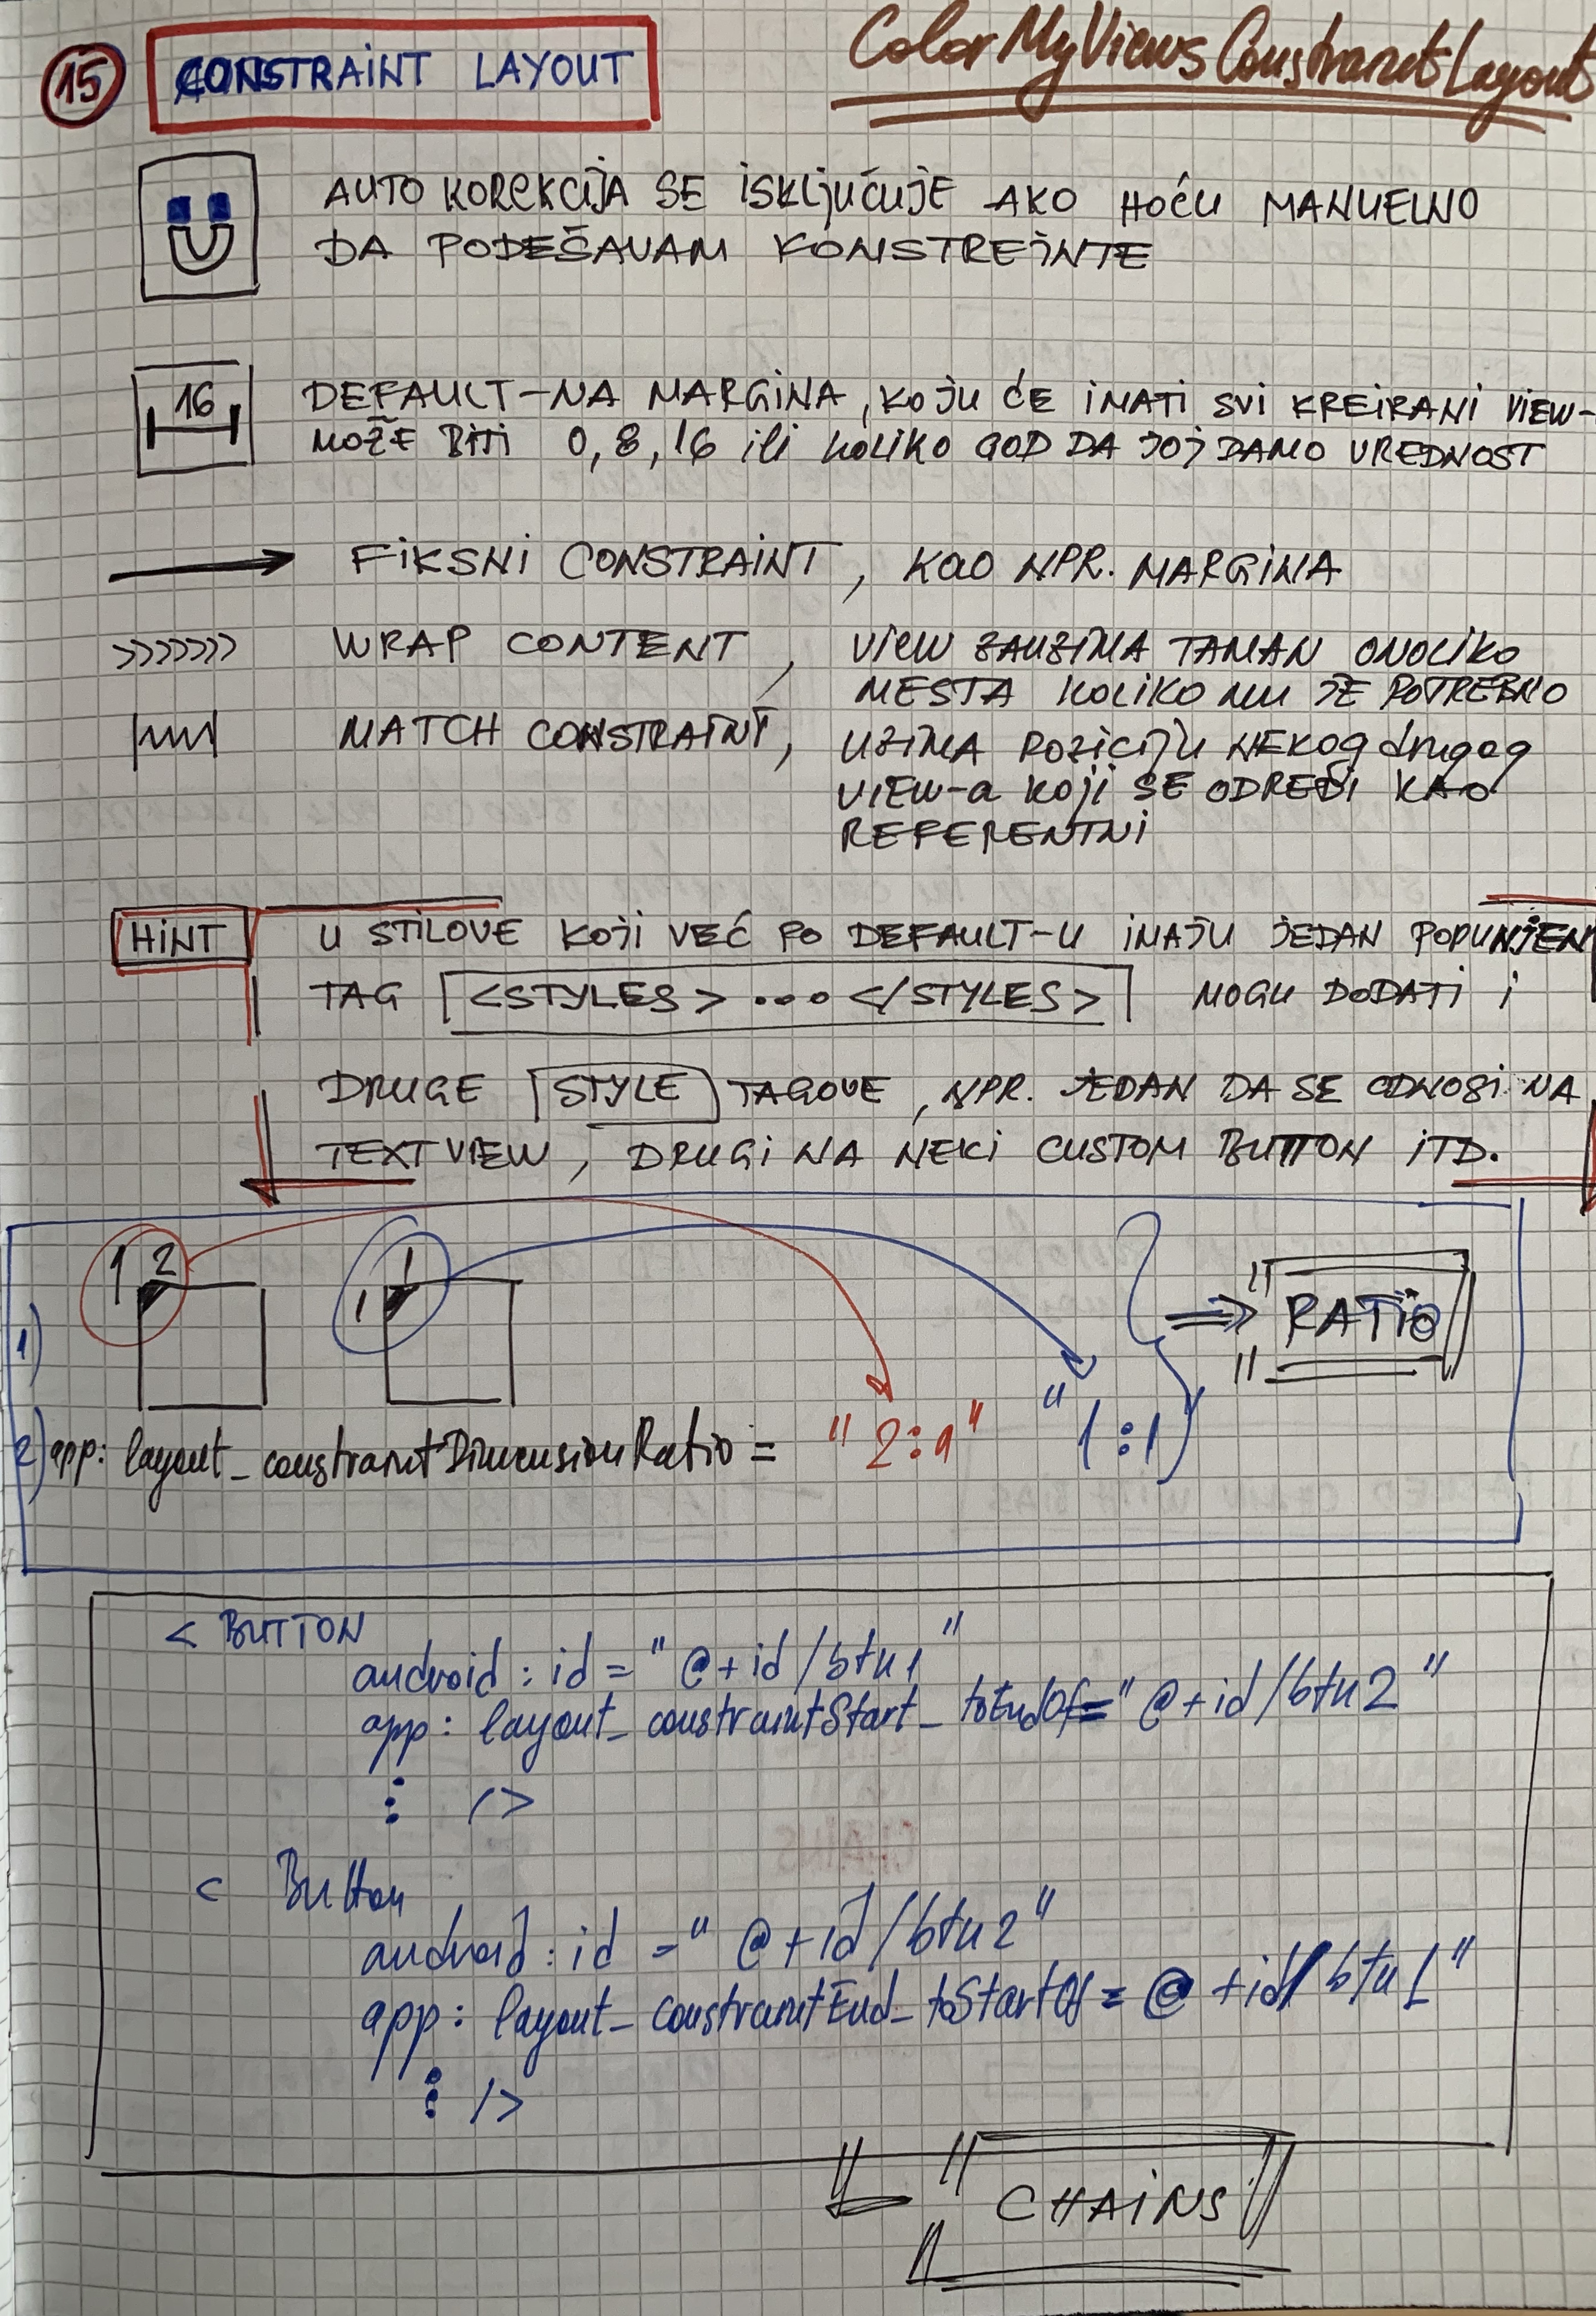 15 CONSTRAINT LAYOUT
ColorMyViewsConstraintLayout
AUTO KOREKCIJA SE ISKLJUČUJE AKO HOĆU MANUELNO
DA PODEŠAVAM KONSTREINTE
16
DEFAULT-NA MARGINA, KOJU ĆE IMATI SVI KREIRANI VIEW-
MOŽE BITI 0, 8, 16 ili KOLIKO GOD DA JOJ DAMO VREDNOST
FIKSNI CONSTRAINT, KAO NPR. MARGINA
>>>>>>> WRAP CONTENT, VIEW ZAUZIMA TAMAN ONOLIKO
MESTA KOLIKO MU JE POTREBNO
MATCH CONSTRAINT, UZIMA POZICIJU NEKOG drugog
VIEW-a KOJI SE ODREDI KAO
REFERENTNI
HINT U STILOVE KOJI VEĆ PO DEFAULT-U IMAJU JEDAN POPUNJEN
TAG <STYLES> ... </STYLES> MOGU DODATI I
DRUGE STYLE TAGOVE, NPR. JEDAN DA SE ODNOSI NA
TEXT VIEW, DRUGI NA NEKI CUSTOM BUTTON ITD.
1) 1 2 1 1 => "RATIO"
2) app: layout_constraintDimensionRatio = "2:1" "1:1
< BUTTON
android: id = "@+id/btn1"
app: layout_constraintStart_toEndOf="@+id/btn2"
⋮ />
< Button
android: id = "@+id/btn2"
app: layout_constraintEnd_toStartOf = @+id/btn1"
⋮ />
"CHAINS